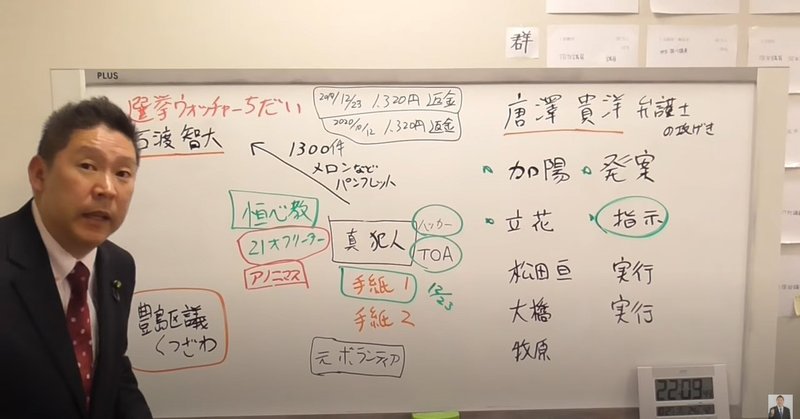 PLUS
群
選挙ウォッチャーちだい
石渡智大
2019/12/23 1.320円返金
2020/10/12 1.320円返金
1300件
メロンなど
パンフレット
恒心教
21才フリーター
アノニマス
真犯人
ハッカー
TOA
手紙1
12/23
手紙2
元ボランティア
豊島区議
くつざわ
唐澤貴洋弁護士
の投げき
加陽 発案
立花 指示
松田亘 実行
大橋 実行
牧原
22:09